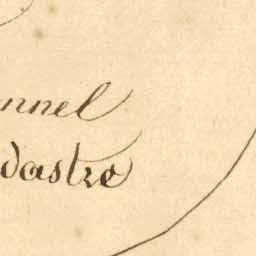 nnel
dastre